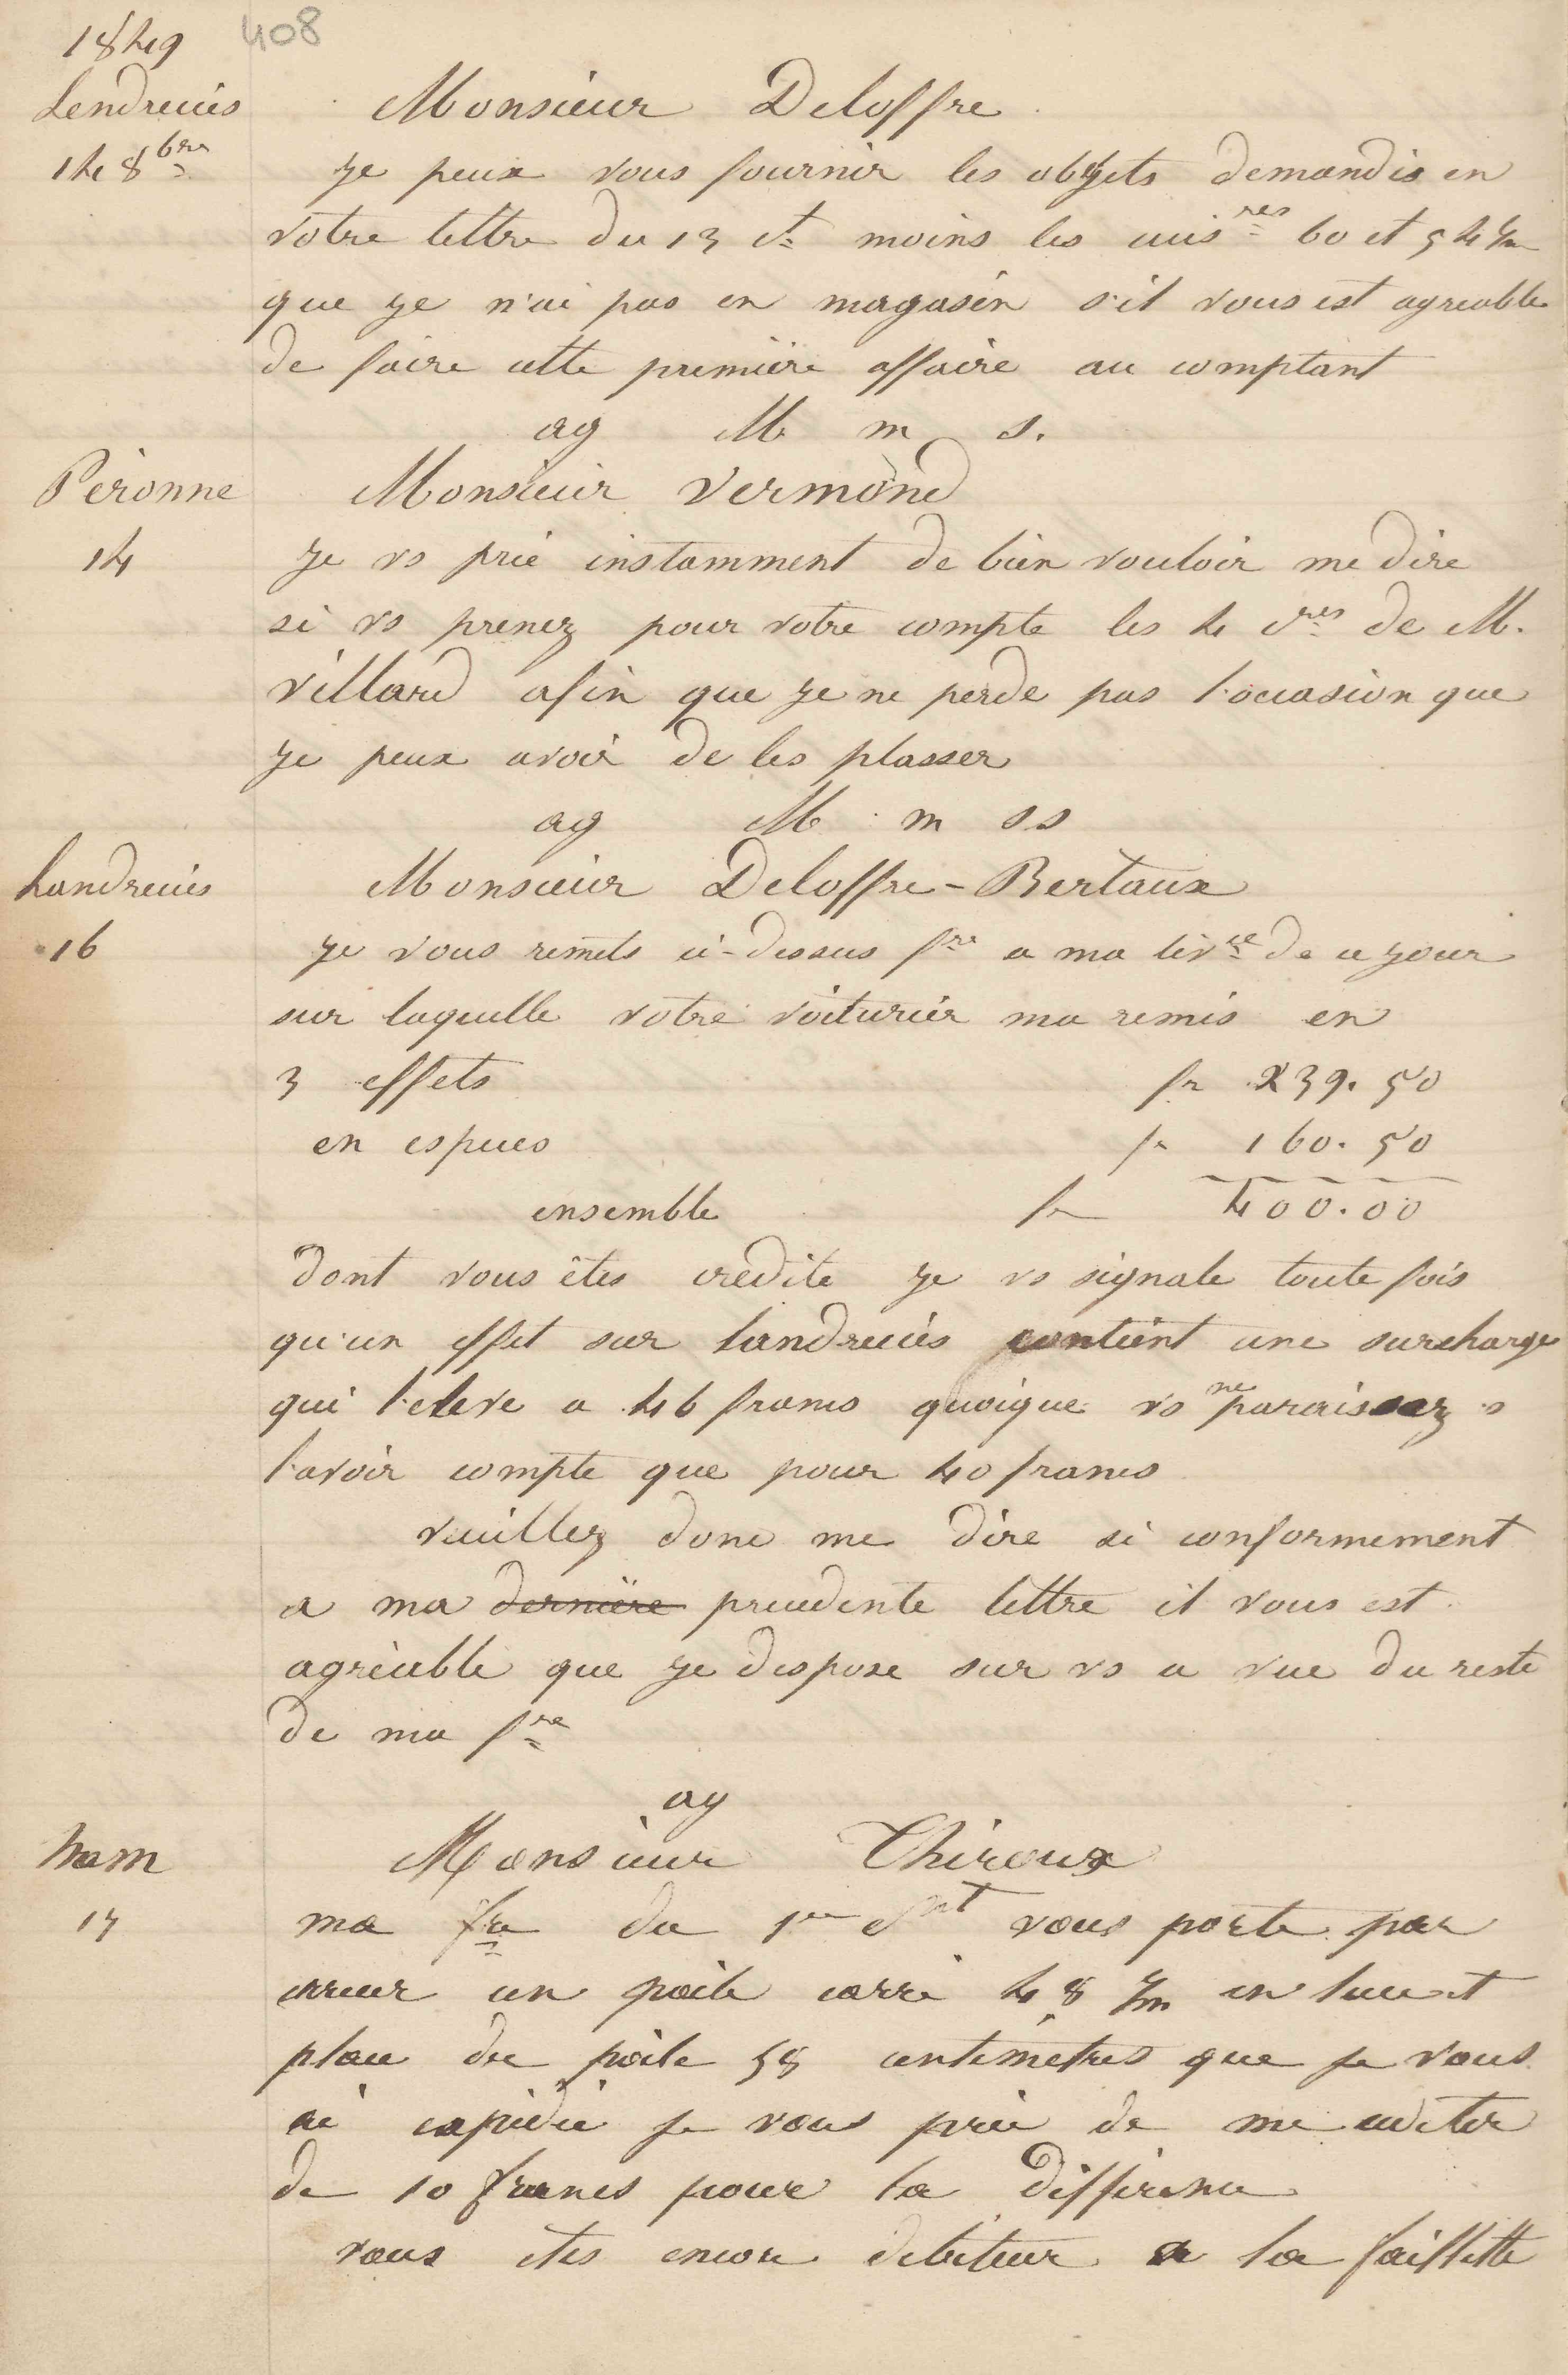 1849 408
Lendrecies Monsieur Deloffre
14 8bre je peux vous fournir les objets demandés en
votre lettre du 13 ct moins les cuisres 60 et 54 c/m
que je n'ai pas en magasin s'il vous est agreable
de faire cette première affaire au comptant
ag M m s.
Péronne Monsieur Vermond
14 Je vs prie instamment de bien vouloir me dire
si vs prenez pour votre compte les 4 cres de M.
villard afin que je ne perde pas l'occasion que
je peux avoir de les plasser
ag M m ss
Landrecies Monsieur Deloffre-Bertaux
16 Je vous remets ci-dessus fre a ma livce de ce jour
sur laquelle votre voiturier ma remis en
3 effets fr 239.50
en especes fr 160.50
ensemble fr 400.00
dont vous êtes credité je vs signale toute fois
qu'un effet sur landrecies contient une surcharge
qui l'eleve a 46 francs quoique vs ne paraissez
l'avoir compte que pour 40 francs
veuillez donc me dire si conformement
a ma dernière precedente lettre il vous est
agréable que je dispose sur vs a vue du reste
de ma fre
ag
ham Monsieur Thiroux
17 ma fre du 1er cnt vous porte par
erreur un poile carré 48 c/m en lieu et
place du poile 58 centimètres que je vous
ai expidié je vous prie de me créditer
de 10 francs pour la differance
vous êtes encore debiteur a la faillette